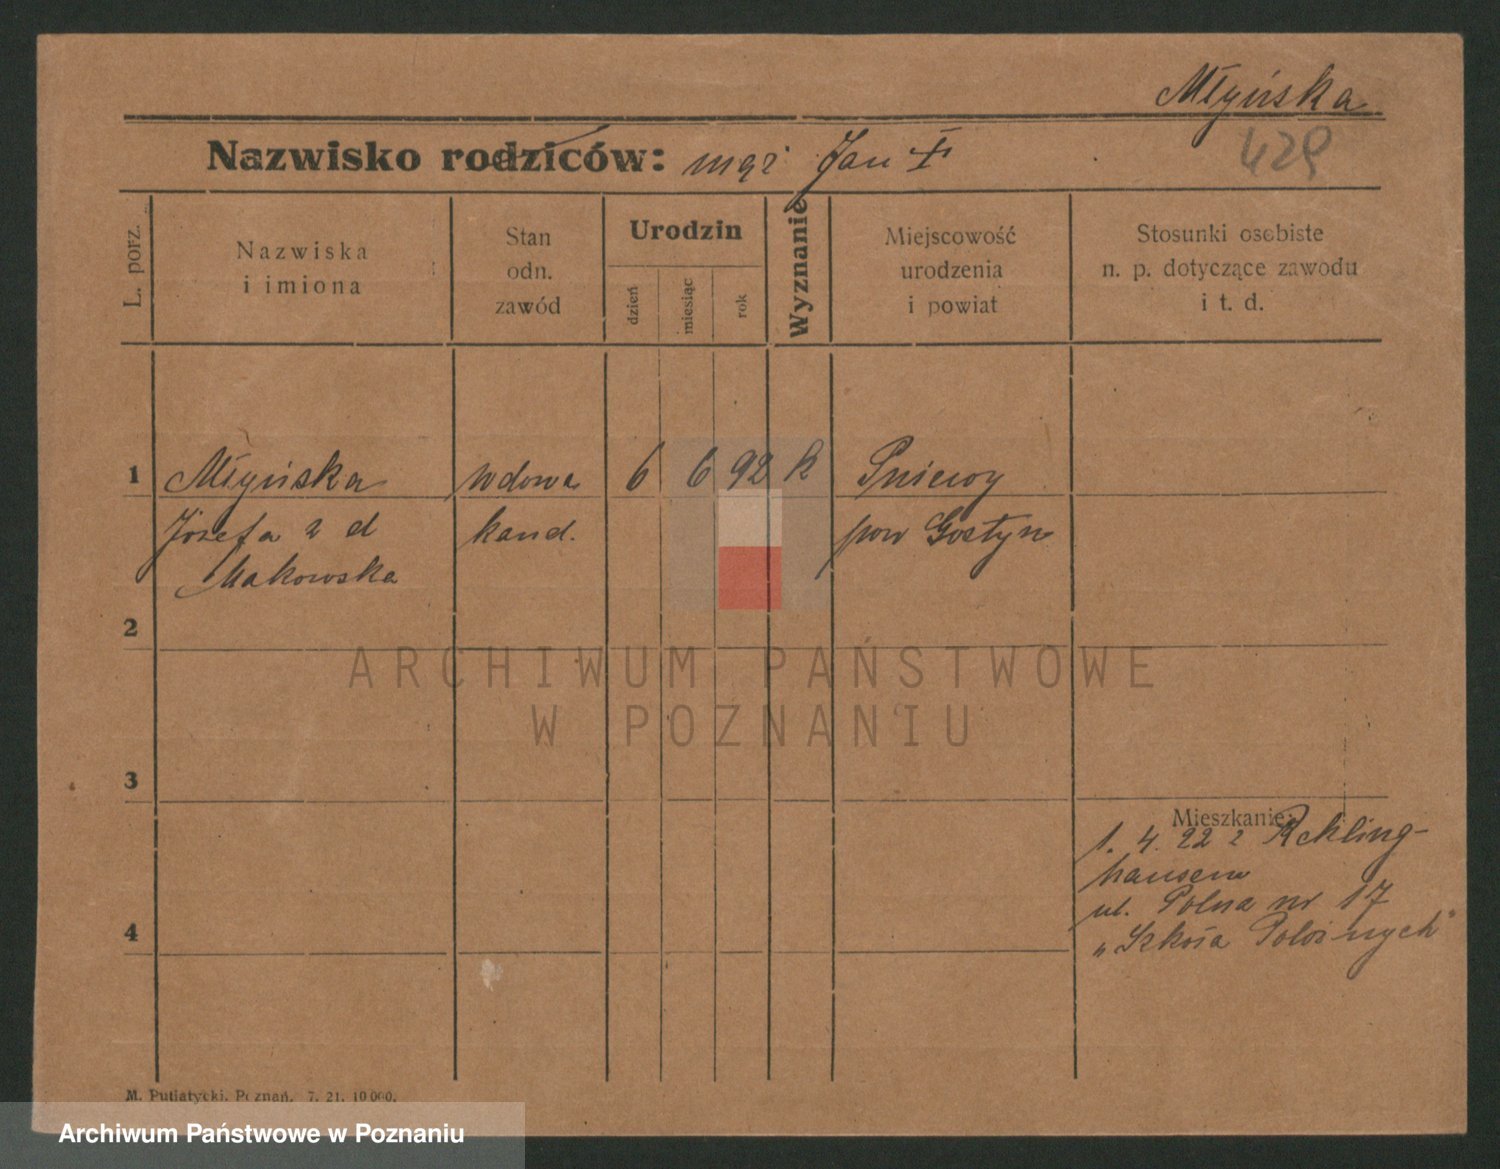 Młyńska
429
Nazwisko rodziców: mąż Jan †
L. porz.
Nazwiska
i imiona
Stan
odn.
zawód
Urodzin
dzień
miesiąc
rok
Wyznanie
Miejscowość
urodzenia
i powiat
Stosunki osobiste
n. p. dotyczące zawodu
i t. d.
1
Młyńska wdowa 6 6 92 k Pniewy
Józefa z d kand. pow Gostyn
Makowska
2
ARCHIWUM PAŃSTWOWE
W POZNANIU
3
Mieszkanie:
1. 4. 22 z Rekling-
hausen
ul. Polna nr 17
"Szkoła Położnych"
4
M. Putiatycki, Poznań. 7. 21. 10000.
Archiwum Państwowe w Poznaniu